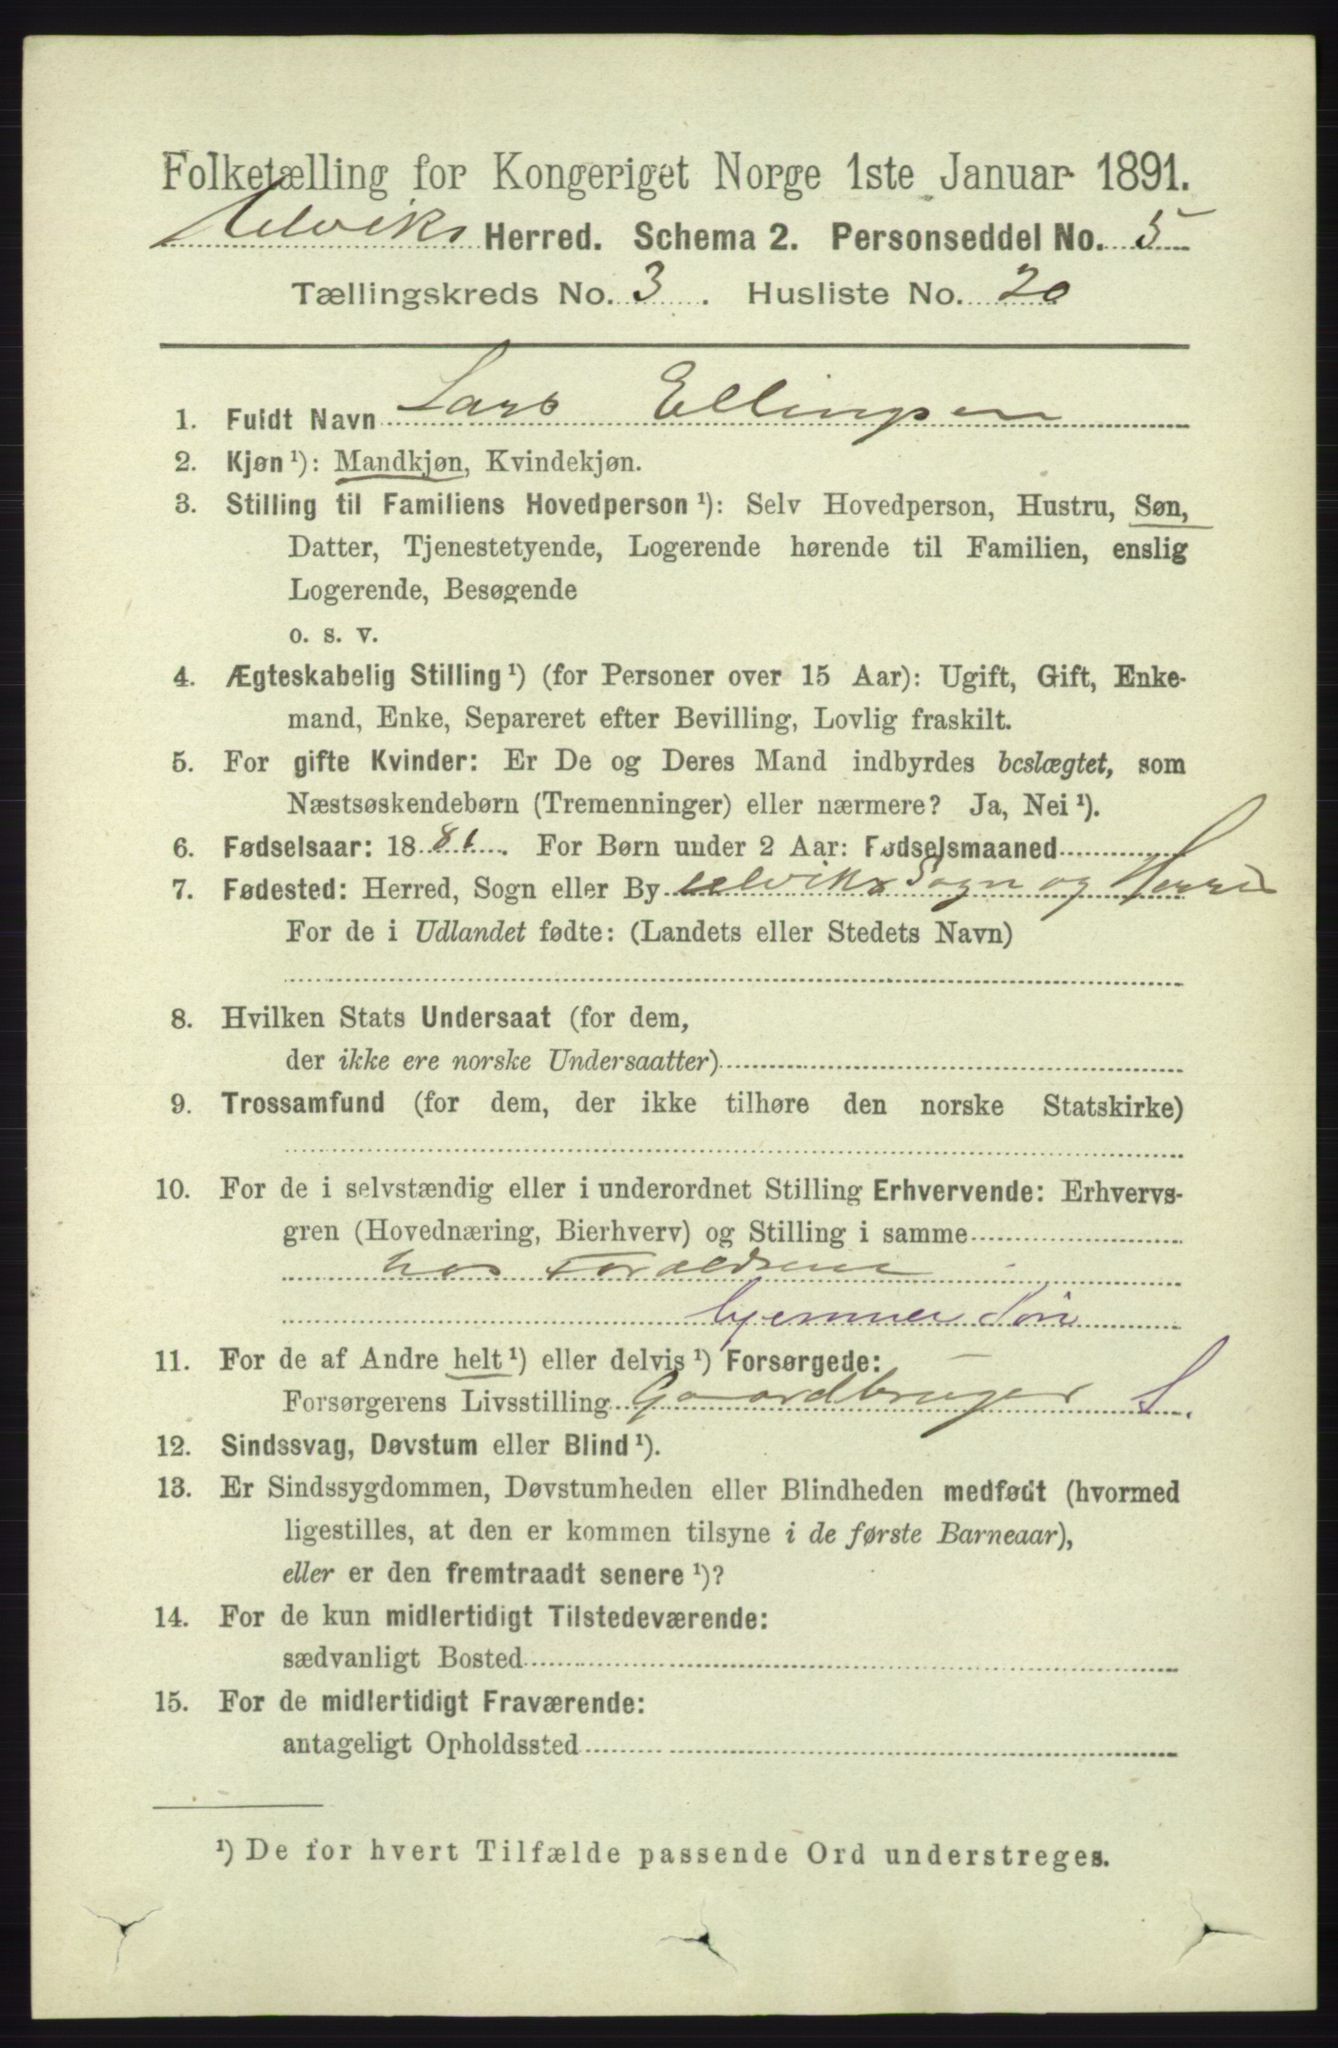 Folketælling for Kongeriget Norge 1ste Januar 1891.
Ulviks Herred. Schema 2. Personseddel No. 5
Tællingskreds No. 3. Husliste No. 20
1. Fuldt Navn Lars Ellingsen
2. Kjøn ¹): Mandkjøn, Kvindekjøn.
3. Stilling til Familiens Hovedperson ¹): Selv Hovedperson, Hustru, Søn,
Datter, Tjenestetyende, Logerende hørende til Familien, enslig
Logerende, Besøgende
o. s. v.
4. Ægteskabelig Stilling ¹) (for Personer over 15 Aar): Ugift, Gift, Enke-
mand, Enke, Separeret efter Bevilling, Lovlig fraskilt.
5. For gifte Kvinder: Er De og Deres Mand indbyrdes beslægtet, som
Næstsøskendebørn (Tremenninger) eller nærmere? Ja, Nei ¹).
6. Fødselsaar: 1881. For Børn under 2 Aar: Fødselsmaaned
7. Fødested: Herred, Sogn eller By Ulviks Sogn og Herred
For de i Udlandet fødte: (Landets eller Stedets Navn)
8. Hvilken Stats Undersaat (for dem,
der ikke ere norske Undersaatter)
9. Trossamfund (for dem, der ikke tilhøre den norske Statskirke)
10. For de i selvstændig eller i underordnet Stilling Erhvervende: Erhvervs-
gren (Hovednæring, Bierhverv) og Stilling i samme
hos Forældrene
hjemmev Søn
11. For de af Andre helt ¹) eller delvis ¹) Forsørgede:
Forsørgerens Livsstilling Gaardbruger S.
12. Sindssvag, Døvstum eller Blind ¹).
13. Er Sindssygdommen, Døvstumheden eller Blindheden medfødt (hvormed
ligestilles, at den er kommen tilsyne i de første Barneaar),
eller er den fremtraadt senere ¹)?
14. For de kun midlertidigt Tilstedeværende:
sædvanligt Bosted
15. For de midlertidigt Fraværende:
antageligt Opholdssted
¹) De for hvert Tilfælde passende Ord understreges.